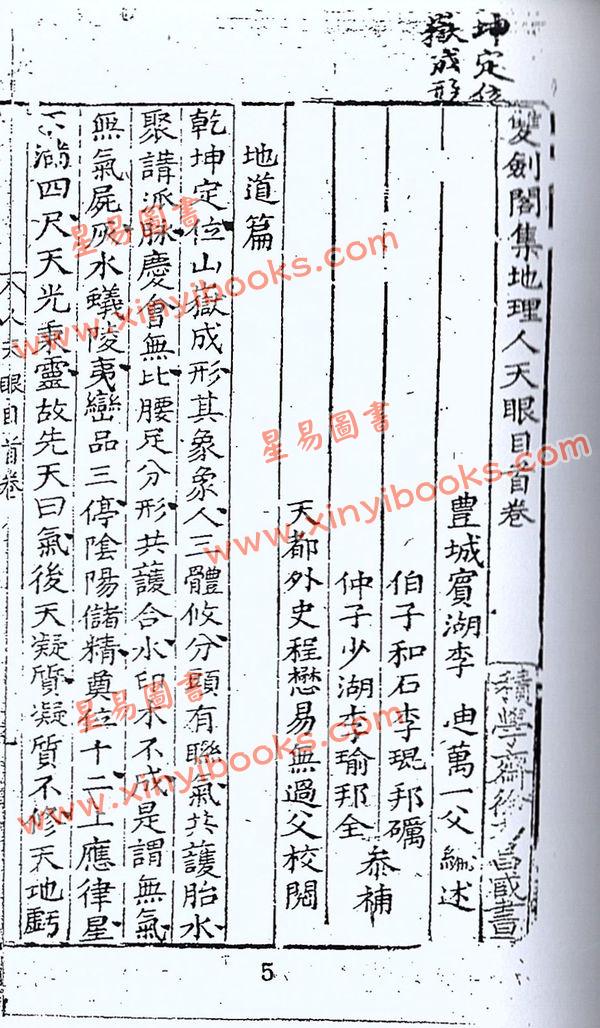 坤定位
嶽成形
雙劍閣集地理人天眼目首卷
積學齋徐乃昌藏書
豊城賓湖李 迪萬一父編述
伯子和石李琨邦礪
仲子少湖李瑜邦全
叅補
天都外史程懋易無過父校閱
地道篇
乾坤定位山嶽成形其象象人三體攸分頭有聯氣共護胎水
聚講派脉慶會無比腰足分形共護合水印木不成是謂無氣
無氣屍灰水蟻陵夷巒品三停陰陽儲精奠位十二上應律星
不滿四尺天光秉靈故先天曰氣後天凝質凝質不修天地虧
人天眼目首卷
5
星易圖書
www.xinyibooks.com
星易圖書
www.xinyibooks.com
星易圖書
www.xinyibooks.com